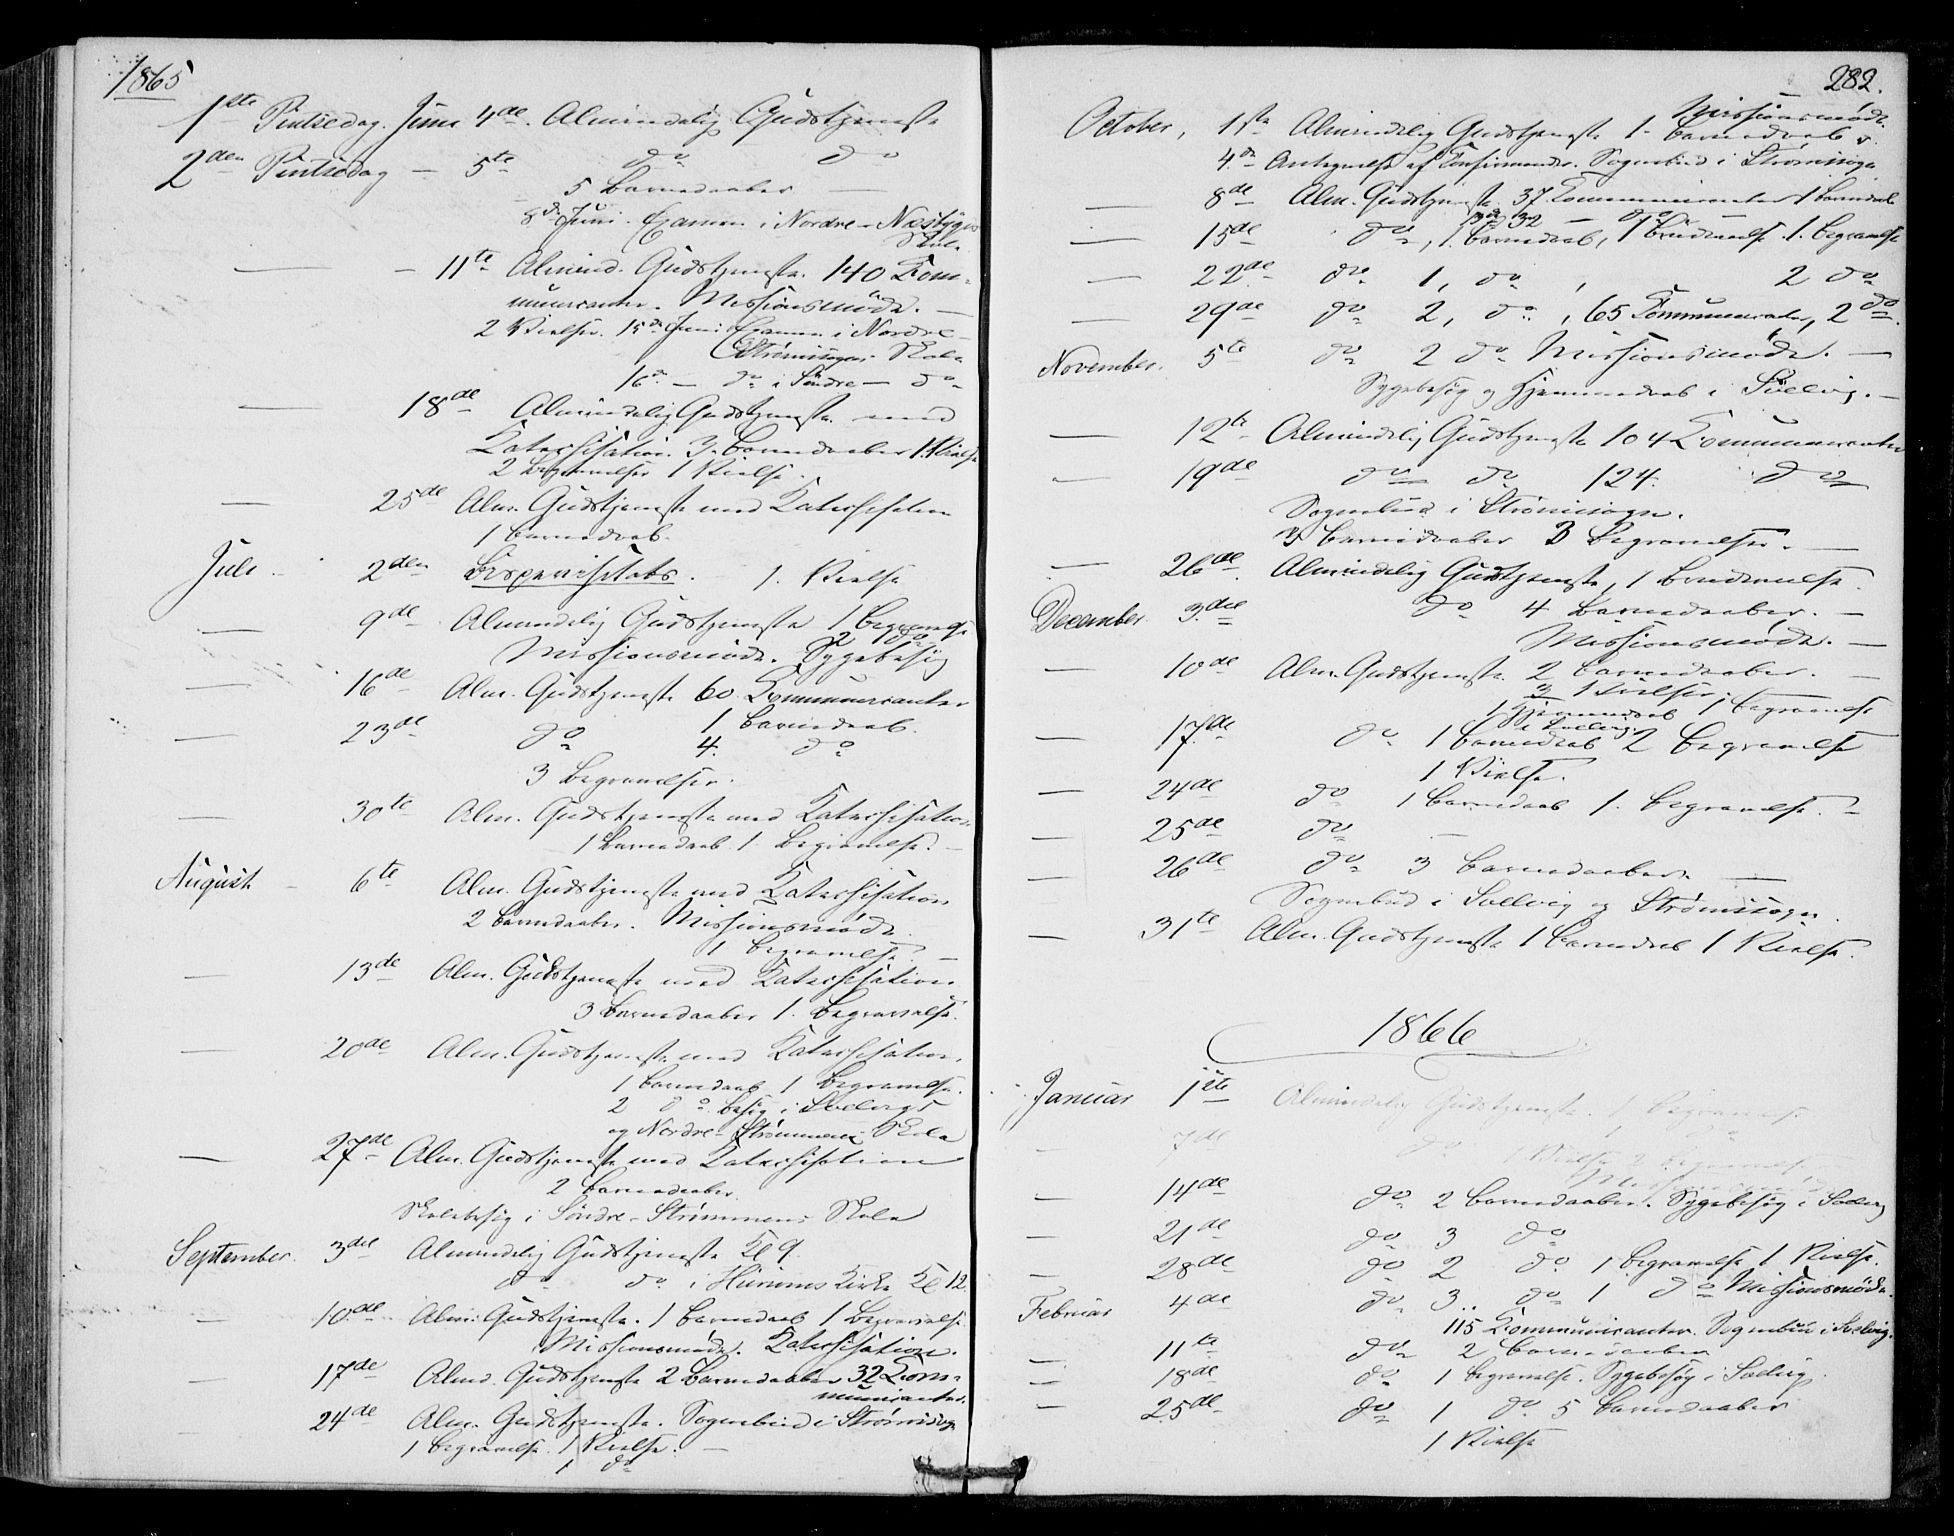 1865
1ste Pintsedag. Juni 4de. Almindelig Gudstjeneste
2den Pintsedag — 5te do do
5 Barnedaaber —
8de Juni. Examen i Nordre- Nesbygdens
Skole
— - 11te Almind. Gudstjeneste. 140 Kom-
municanter. Missionsmöde. —
2 Vielser. 15de Juni Examen i Nordre-
Strömsogns Skole
16de — do i Söndre — do
— 18de Almindelig Gudstjeneste med
Katechisation. 3 Barnedaaber 1 Vielse
2 Begravelser 1 Vielse.
— 25de Alm. Gudstjeneste med Katechisation
1 Barnedaab.
Juli - 2den Bispevisitats. 1. Vielse
— 9de Almindelig Gudstjeneste 1 Begravelse
2 do
Missionsmöde. Sygebesög
— 16de Alm. Gudstjeneste 60 Kommunicanter
1 Barnedaab.
— 23de do 4. do
3 Begravelser.
— 30te Alm. Gudstjeneste med Katechisation
1 Barnedaab 1. Begravelse. —
August - 6te Alm. Gudstjeneste med Katechisation
2 Barnedaaber. Missionsmöde
1 Begravelse. —
— 13de Alm. Gudstjeneste med Katechisation
3 Barnedaaber 1. Begravelse.
— 20de Alm. Gudstjeneste med Katechisation.
1 Barnedaab 1 Begravelse.
2 do Besög i Svelvigs
og Nordre- Strömmens Skole
— 27de Alm. Gudstjeneste med Katechisation
2 Barnedaaber.
Skolebesög i Söndre- Strömmens Skole
September. 3die Almindelig Gudstjeneste Kl 9.
do do i Hurums Kirke Kl 12.
— 10de Alm. Gudstjeneste. 1 Barnedaab 1 Begravelse
Missionsmöde. Katechisation.
— 17de Almd. Gudstjeneste 2 Barnedaaber 32 Kom-
municanter.
— 24de Alm. Gudstjeneste. Sognebud i Strömsogn
1 Begravelse. 1 Vielse. —
1 do
282.
Missionsmöde.
October, 1ste Almindelig Gudstjeneste 1. Barnedaab
4de Antegnelse af Konfirmander. Sognebud i Strömsogn
— 8de Alm. Gudstjeneste 37 Kommunicanter 1 Barnedaab
32 — do —
— 15de do, 1 Barnedaab, 1 Brudevielse. 1. Begravelse
— 22de do 1, do, 2 do
— 29de do 2, do, 65 Kommunicanter, 2 do
November. 5te do 2 do Missionsmöde. —
Sygebesög og Hjemmedaab i Svelvig. —
— 12te Almindelig Gudstjeneste 104 Kommunicanter
— 19de do do 124. do
Sognebud i Strömsogn.
3 Barnedaaber 3 Begravelser. —
— 26de. Almindelig Gudstjeneste, 1 Brudevielse.
December 3die do 4 Barnedaaber. —
Missionsmöde. —
— 10de Alm. Gudstjeneste 2 Barnedaaber. —
3 Vielser
1 Hjemmedaab 1 Begravelse
i Svelvig.
— 17de do 1 Barnedaab 2 Begravelse
1 Vielse.
— 24de do 1 Barnedaab 1. Begravelse. —
— 25de do —
— 26de do 3 Barnedaaber —
Sognebud i Svelvig og Strömsogn.
— 31te Alm. Gudstjeneste 1 Barnedaab 1 Vielse.
1866
Januar 1ste Almindelig Gudstjeneste. 1 Begravelse
- 7de do 1 Vielse 2 Begravelse
Missionsmöde
— 14de do 2 Barnedaaber. Sygebesög i Svelvig
— 21de do 3 do
— 28de do 2 do 1 Begravelse 1 Vielse.
Februar 4de do 3.. do 1 do Missionsmöde.
115 Kommunicanter. Sognebud i Svelvig.
— 11te do 2 Barnedaaber
— 18de do 1 Begravelse. Sygebesög i Svelvig.
— 25de do 1 do 5 Barnedaaber
1 Vielse